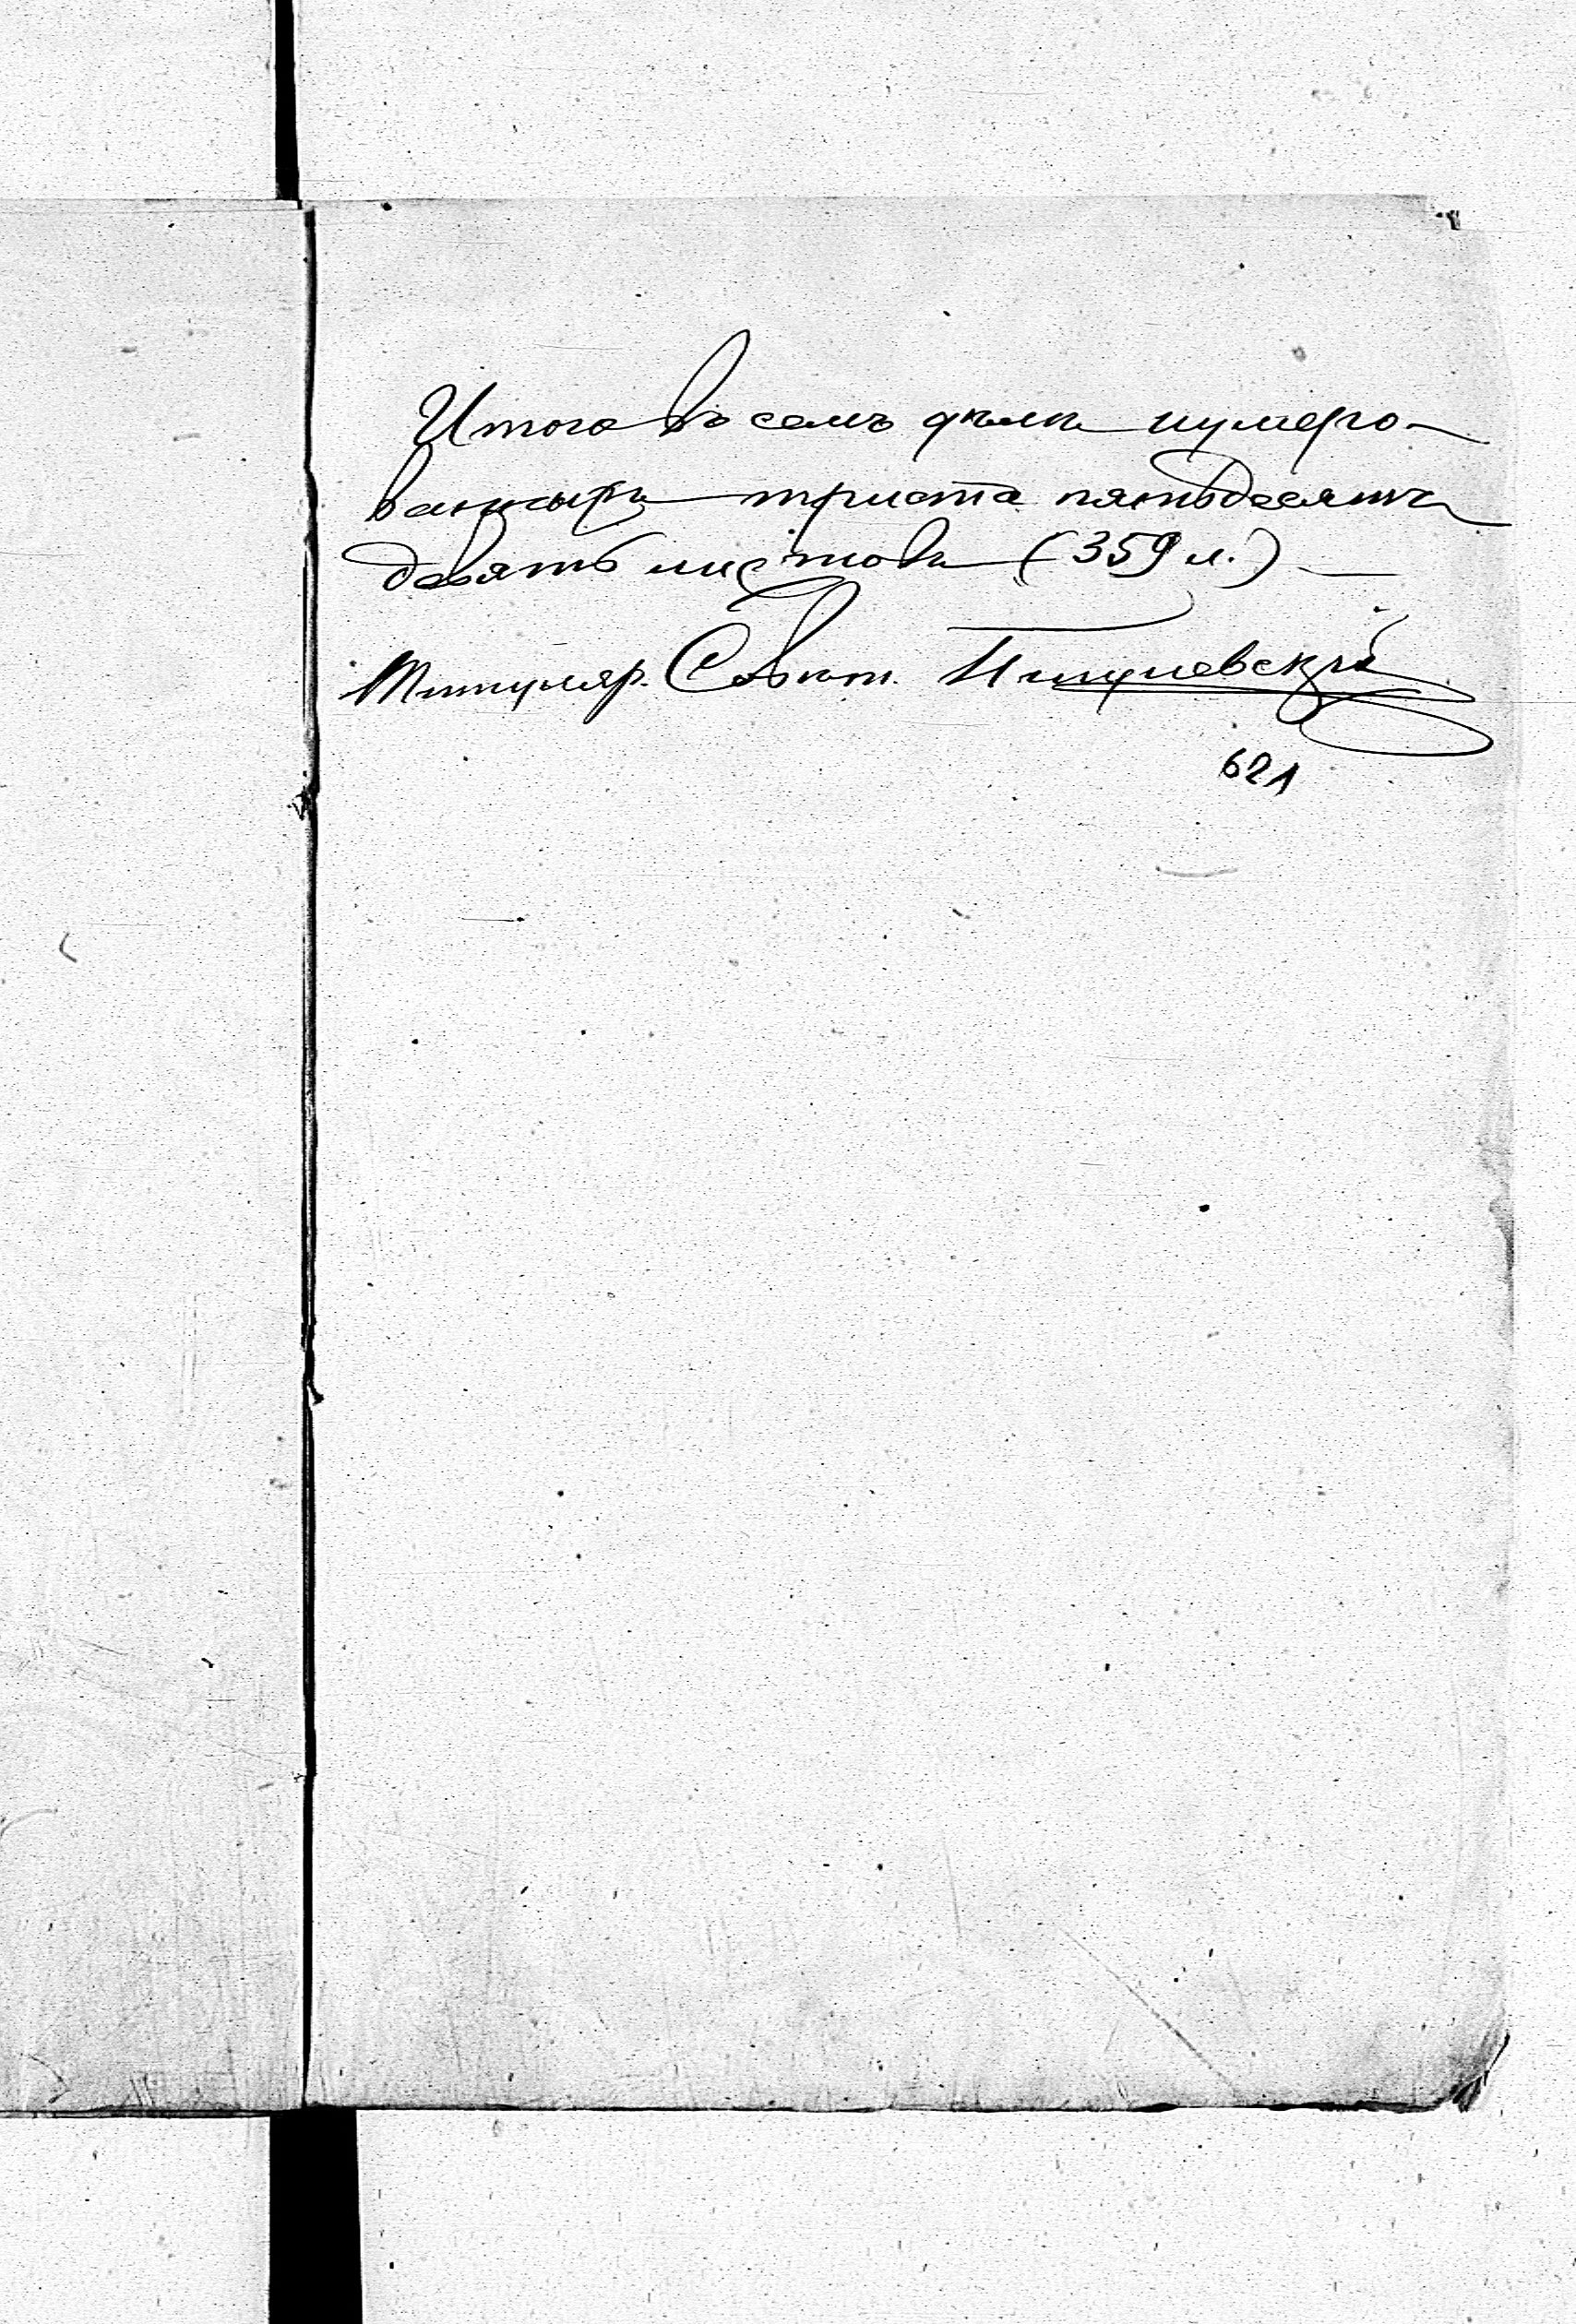 Итого въ семъ дѣлѣ нумеро-
ванныхъ триста пятьдесятъ
девять листовъ (359 л.)
Титуляр. Совѣт.
621